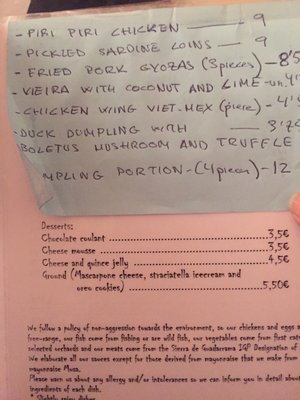 - PIRI PIRI CHICKEN — 9
- PICKLED SARDINE LOINS — 9
- FRIED PORK GYOZAS (3 pieces) — 8'5
- VIEIRA WITH COCONUT AND LIME - un.
- CHICKEN WING VIET-MEX (piece) - 4'
- DUCK DUMPLING WITH —
BOLETUS MUSHROOM AND TRUFFLE
MPLING PORTION - (4 pieces) - 12
Desserts:
Chocolate coulant ........ 3,5€
Cheese mousse ........ 3,5€
Cheese and quince jelly ........ 4,5€
Ground (Mascarpone cheese, straciatella icecream and
oreo cookies) ........ 5,50€
We follow a policy of non-aggression towards the environment, so our chickens and eggs a
free-range, our fish come from fishing or are wild fish, our vegetables come from first cate
selected orchards and our meats come from the Sierra de Guadarrama IGP Designation of
We elaborate all our sauces except for those derived from mayonnaise that we make from
mayonnaise Musa.
Please warn us about any allergy and/or intolerances so we can inform you in detail about
ingredients of each dish.
* Slightly spicy dishes